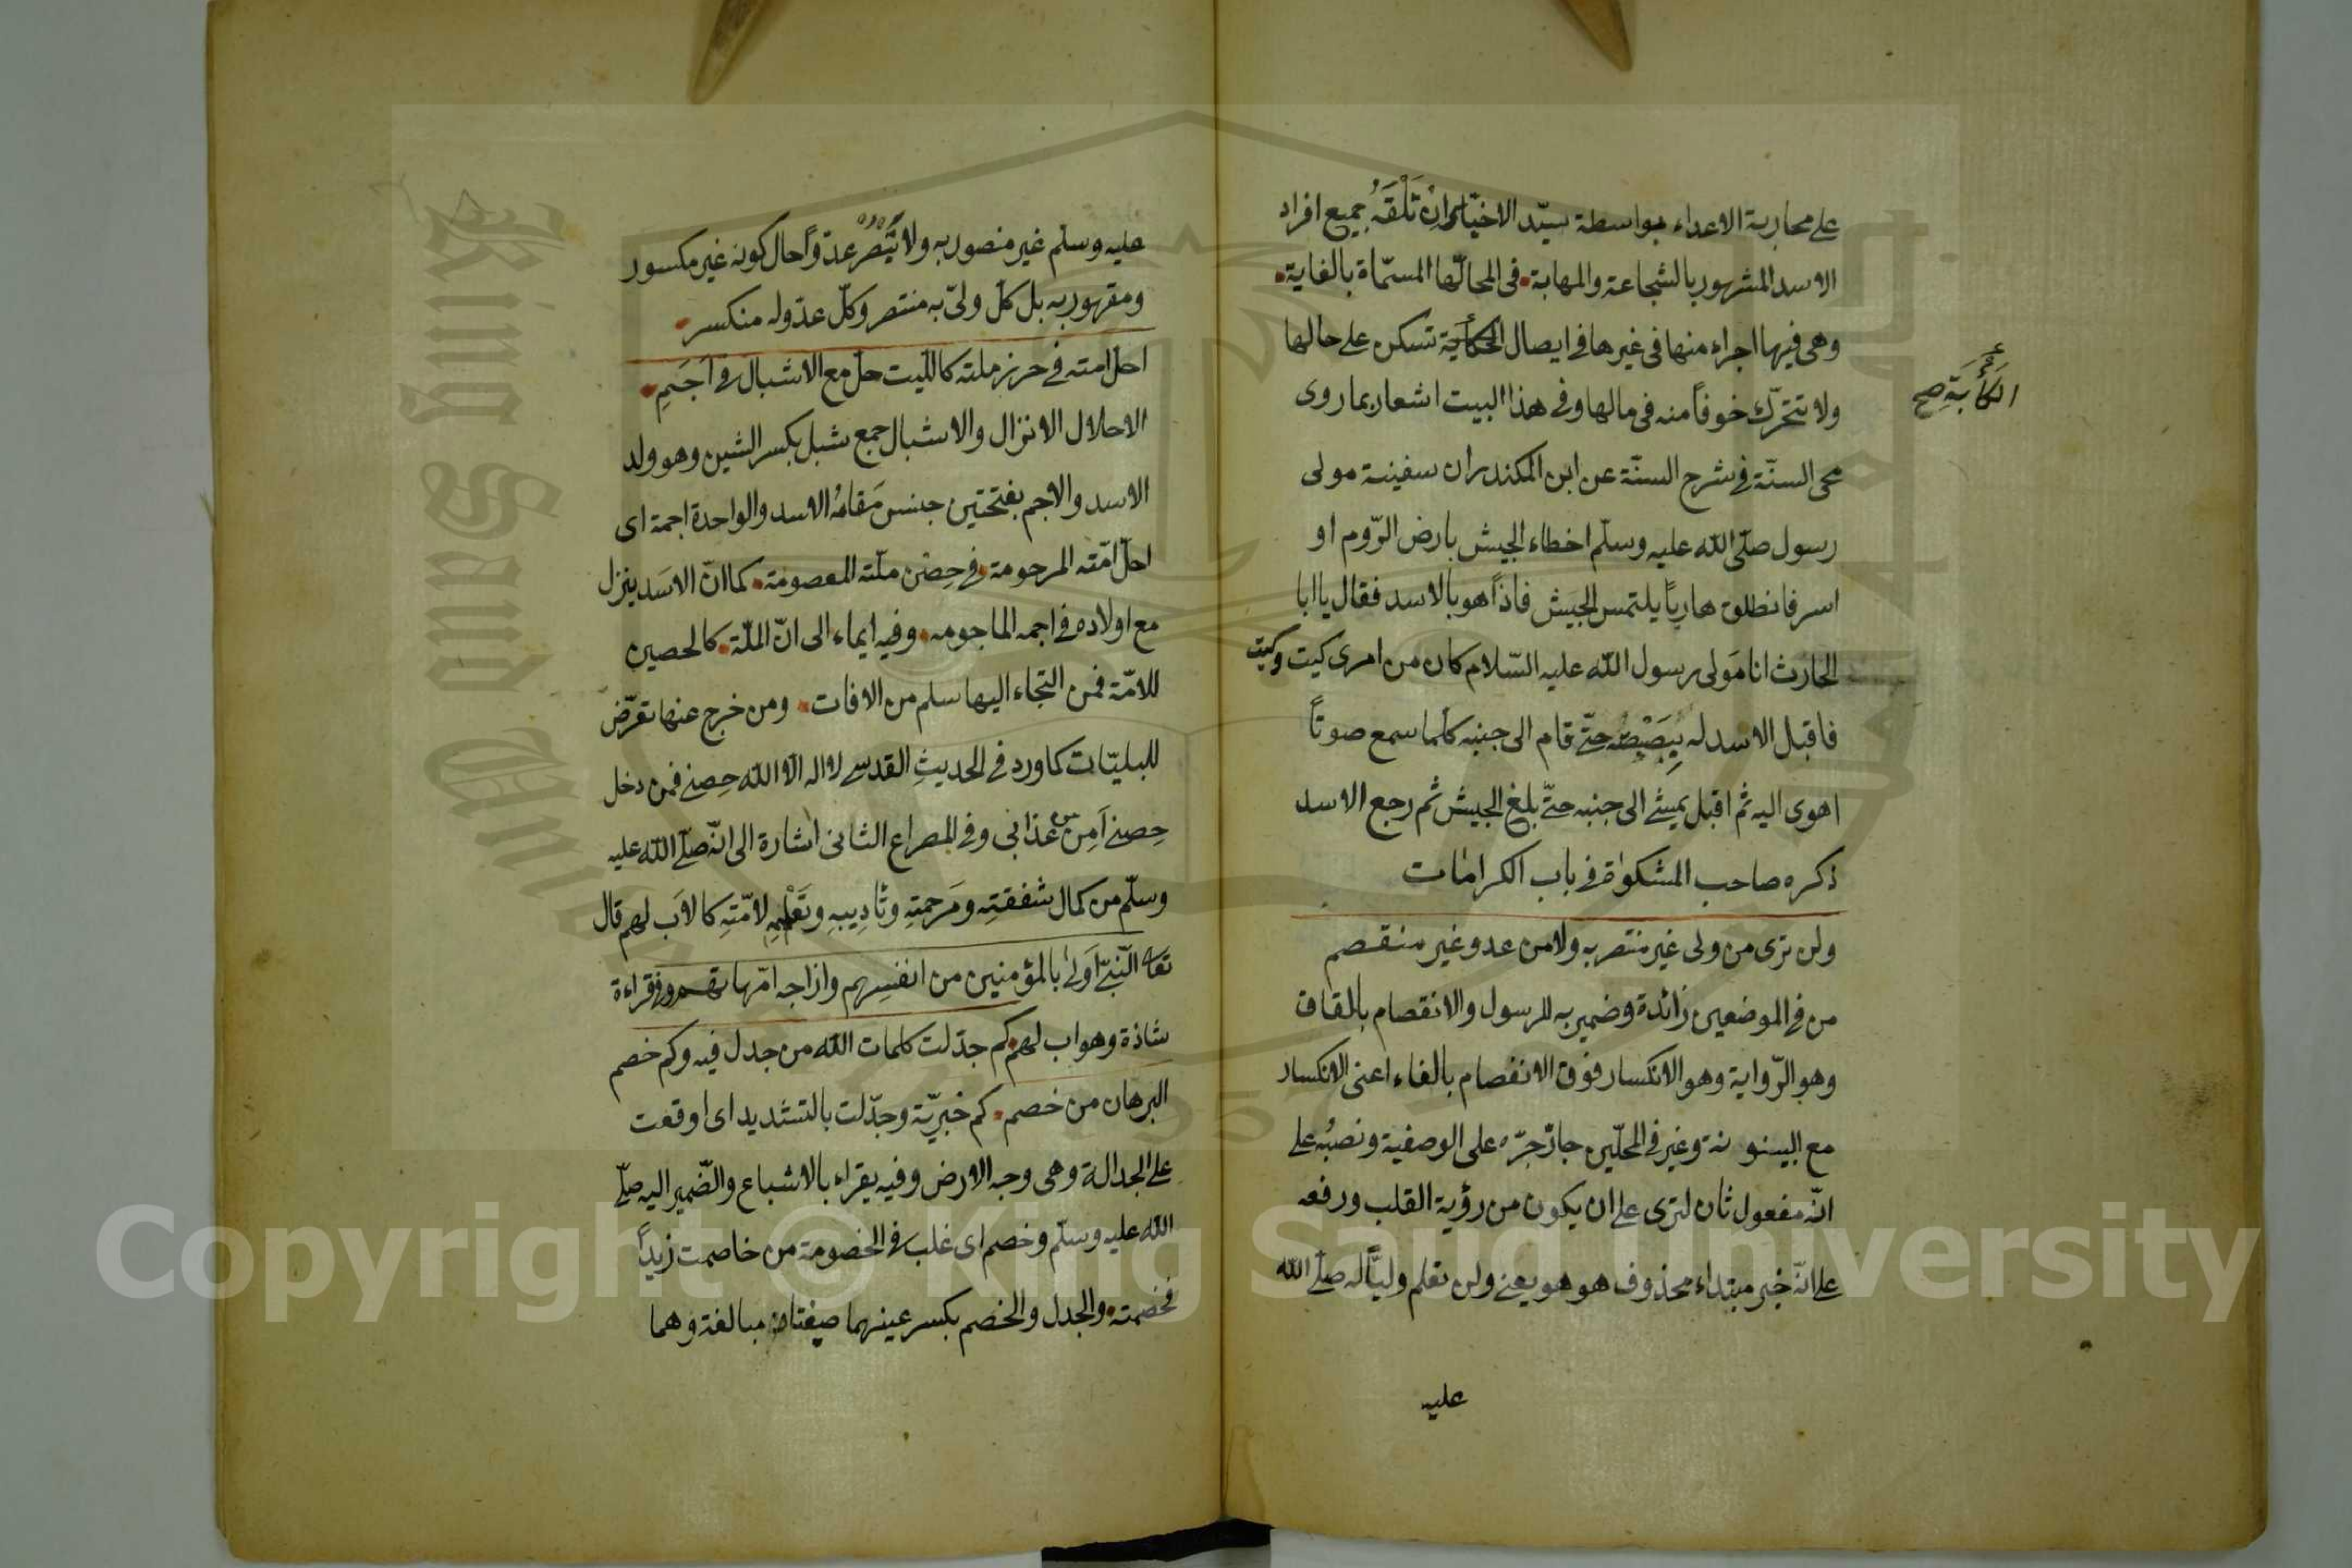 على محاربة الاعداء بواسطة سيّد الاخيار ان تَلْقَهُ جميع افراد
الاسد المشهور بالشجاعة والمهابة في المحالّها المسمّاة بالغاية
وهى فيها اجراء منها فى غيرها فى ايصال الحكاية تسكن على حالها
ولا تتحرّك خوفاً منه فى مالها وفى هذا البيت اشعار بما روى
الكأبة صح
محى السنّة فى شرح السنّة عن ابن المكندر ان سفينة مولى
رسول صلّى الله عليه وسلّم اخطاء الجيش بارض الرّوم او
اسر فانطلق هارباً يلتمس الجيش فاذاً هو بالاسد فقال يا ابا
الحارث انا مَولى رسول الله عليه السّلام كان من امرى كيت وكيت
فاقبل الاسد له يبَصْبِصُ حتّى قام الى جنبه كلّما سمع صوتاً
اهوى اليه ثم اقبل يمشى الى جنبه حتّى بلغ الجيش ثم رجع الاسد
ذكره صاحب المشكوة فى باب الكرامات
ولن ترى من ولى غير منتصر به ولا من عدو غير منقصم
من فى الموضعين زائدة وضمير به للرسول والانقصام بالقاف
وهو الرّواية وهو الانكسار فوق الانفصام بالفاء اعنى الانكسار
مع البينونة وغير فى المحلّين جاز جرّه على الوصفية ونصبُه على
انّه مفعول ثان لترى على ان يكون من رؤية القلب ورفعه
على انّه خبر مبتداء محذوف هو هو يعنى ولن تعلم وليّاً له صلّى الله
عليه
عليه وسلم غير منصور به ولا يَنْصُرُ عدوّاً حال كونه غير مكسور
ومقهور به بل كل ولىّ به منتصر وكلّ عدوّ له منكسر
احلّ امته فى حرز ملته كالليث حلّ مع الاشبال فى اَجَمِ
الاحلال الانزال والاشبال جمع شبل بكسر الشين وهو ولد
الاسد والاجم بفتحتين جنس مَقامُ الاسد والواحدة اجمة اى
احلّ امّته المرحومة فى حِصْن ملّته المعصومة كما انّ الاسَد ينزل
مع اولاده فى اجمه الماجومه وفيه ايماء الى انّ الملّة كالحصين
للامّة فمن التجاء اليها سلم من الافات ومن خرج عنها تعرّض
للبليّات كما ورد فى الحديثِ القدسى لا اله الا الله حِصنى فمن دخل
حِصنى اَمِن من عذابى وفى المصراع الثانى اشارة الى انّه صلّى الله عليه
وسلّم من كمال شفقتِه ومَرحمتِهِ وتأديبِهِ وتَعْليمِهِ لامّتِه كالاَب لهم قال
تعا النّبىّ اَولى بالمؤمنين من انفسِهم وازاجه امّهاتهم وفى قراءة
شاذة وهو اب لهم كم جدّلت كلمات الله من جدل فيه وكم خصم
البرهان من خصم كم خبريّة وجدّلت بالتشديد اى اوقعت
على الجدالة وهى وجه الارض وفيه يقراء بالاشباع والضّمير اليه صلّى
الله عليه وسلّم وخصم اى غلب فى الخصومة من خاصمت زيداً
فخصمته والجدل والخصم بكسر عينهما صيغتا مبالغة وهما
King Saud University
Copyright © King Saud University